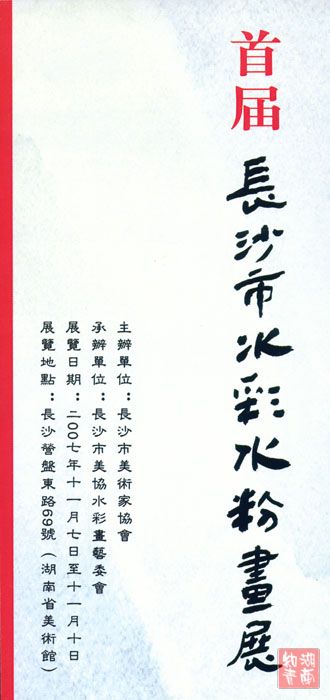 首届
長沙市水彩水粉畫展
主辦單位：長沙市美術家協會
承辦單位：長沙市美協水彩畫藝委會
展覽日期：二00七年十一月七日至十一月十日
展覽地點：長沙營盤東路69號（湖南省美術館）
湖南